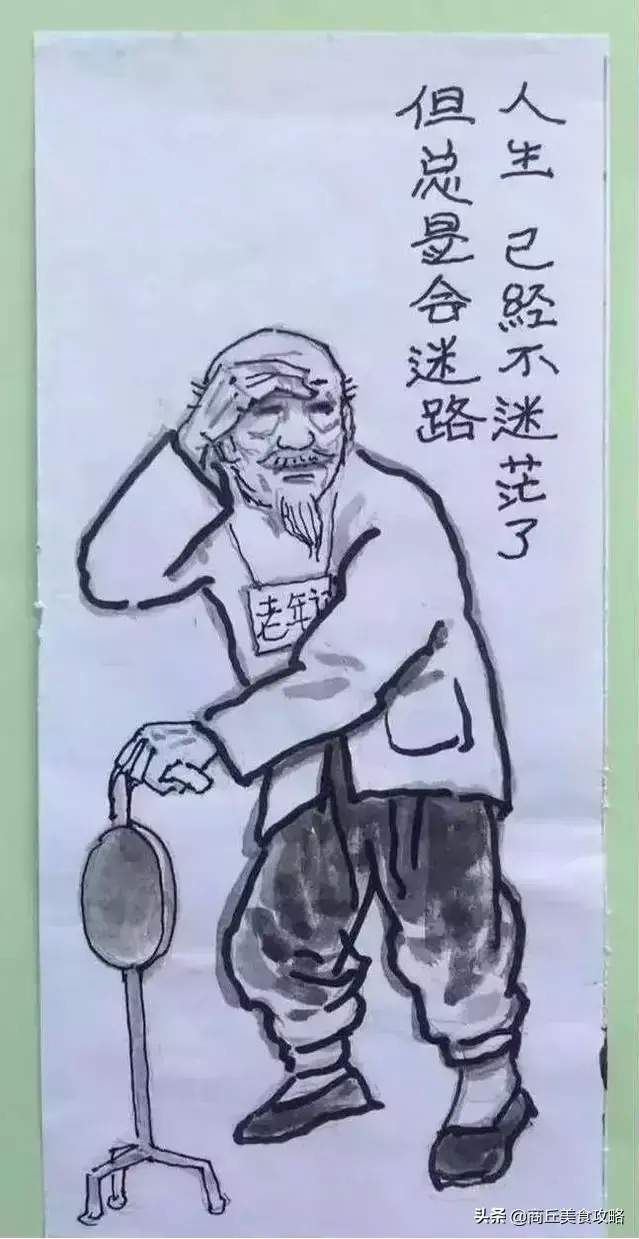 人生 己经不迷茫了
但总是会迷路
老年证
头条 @商丘美食攻略